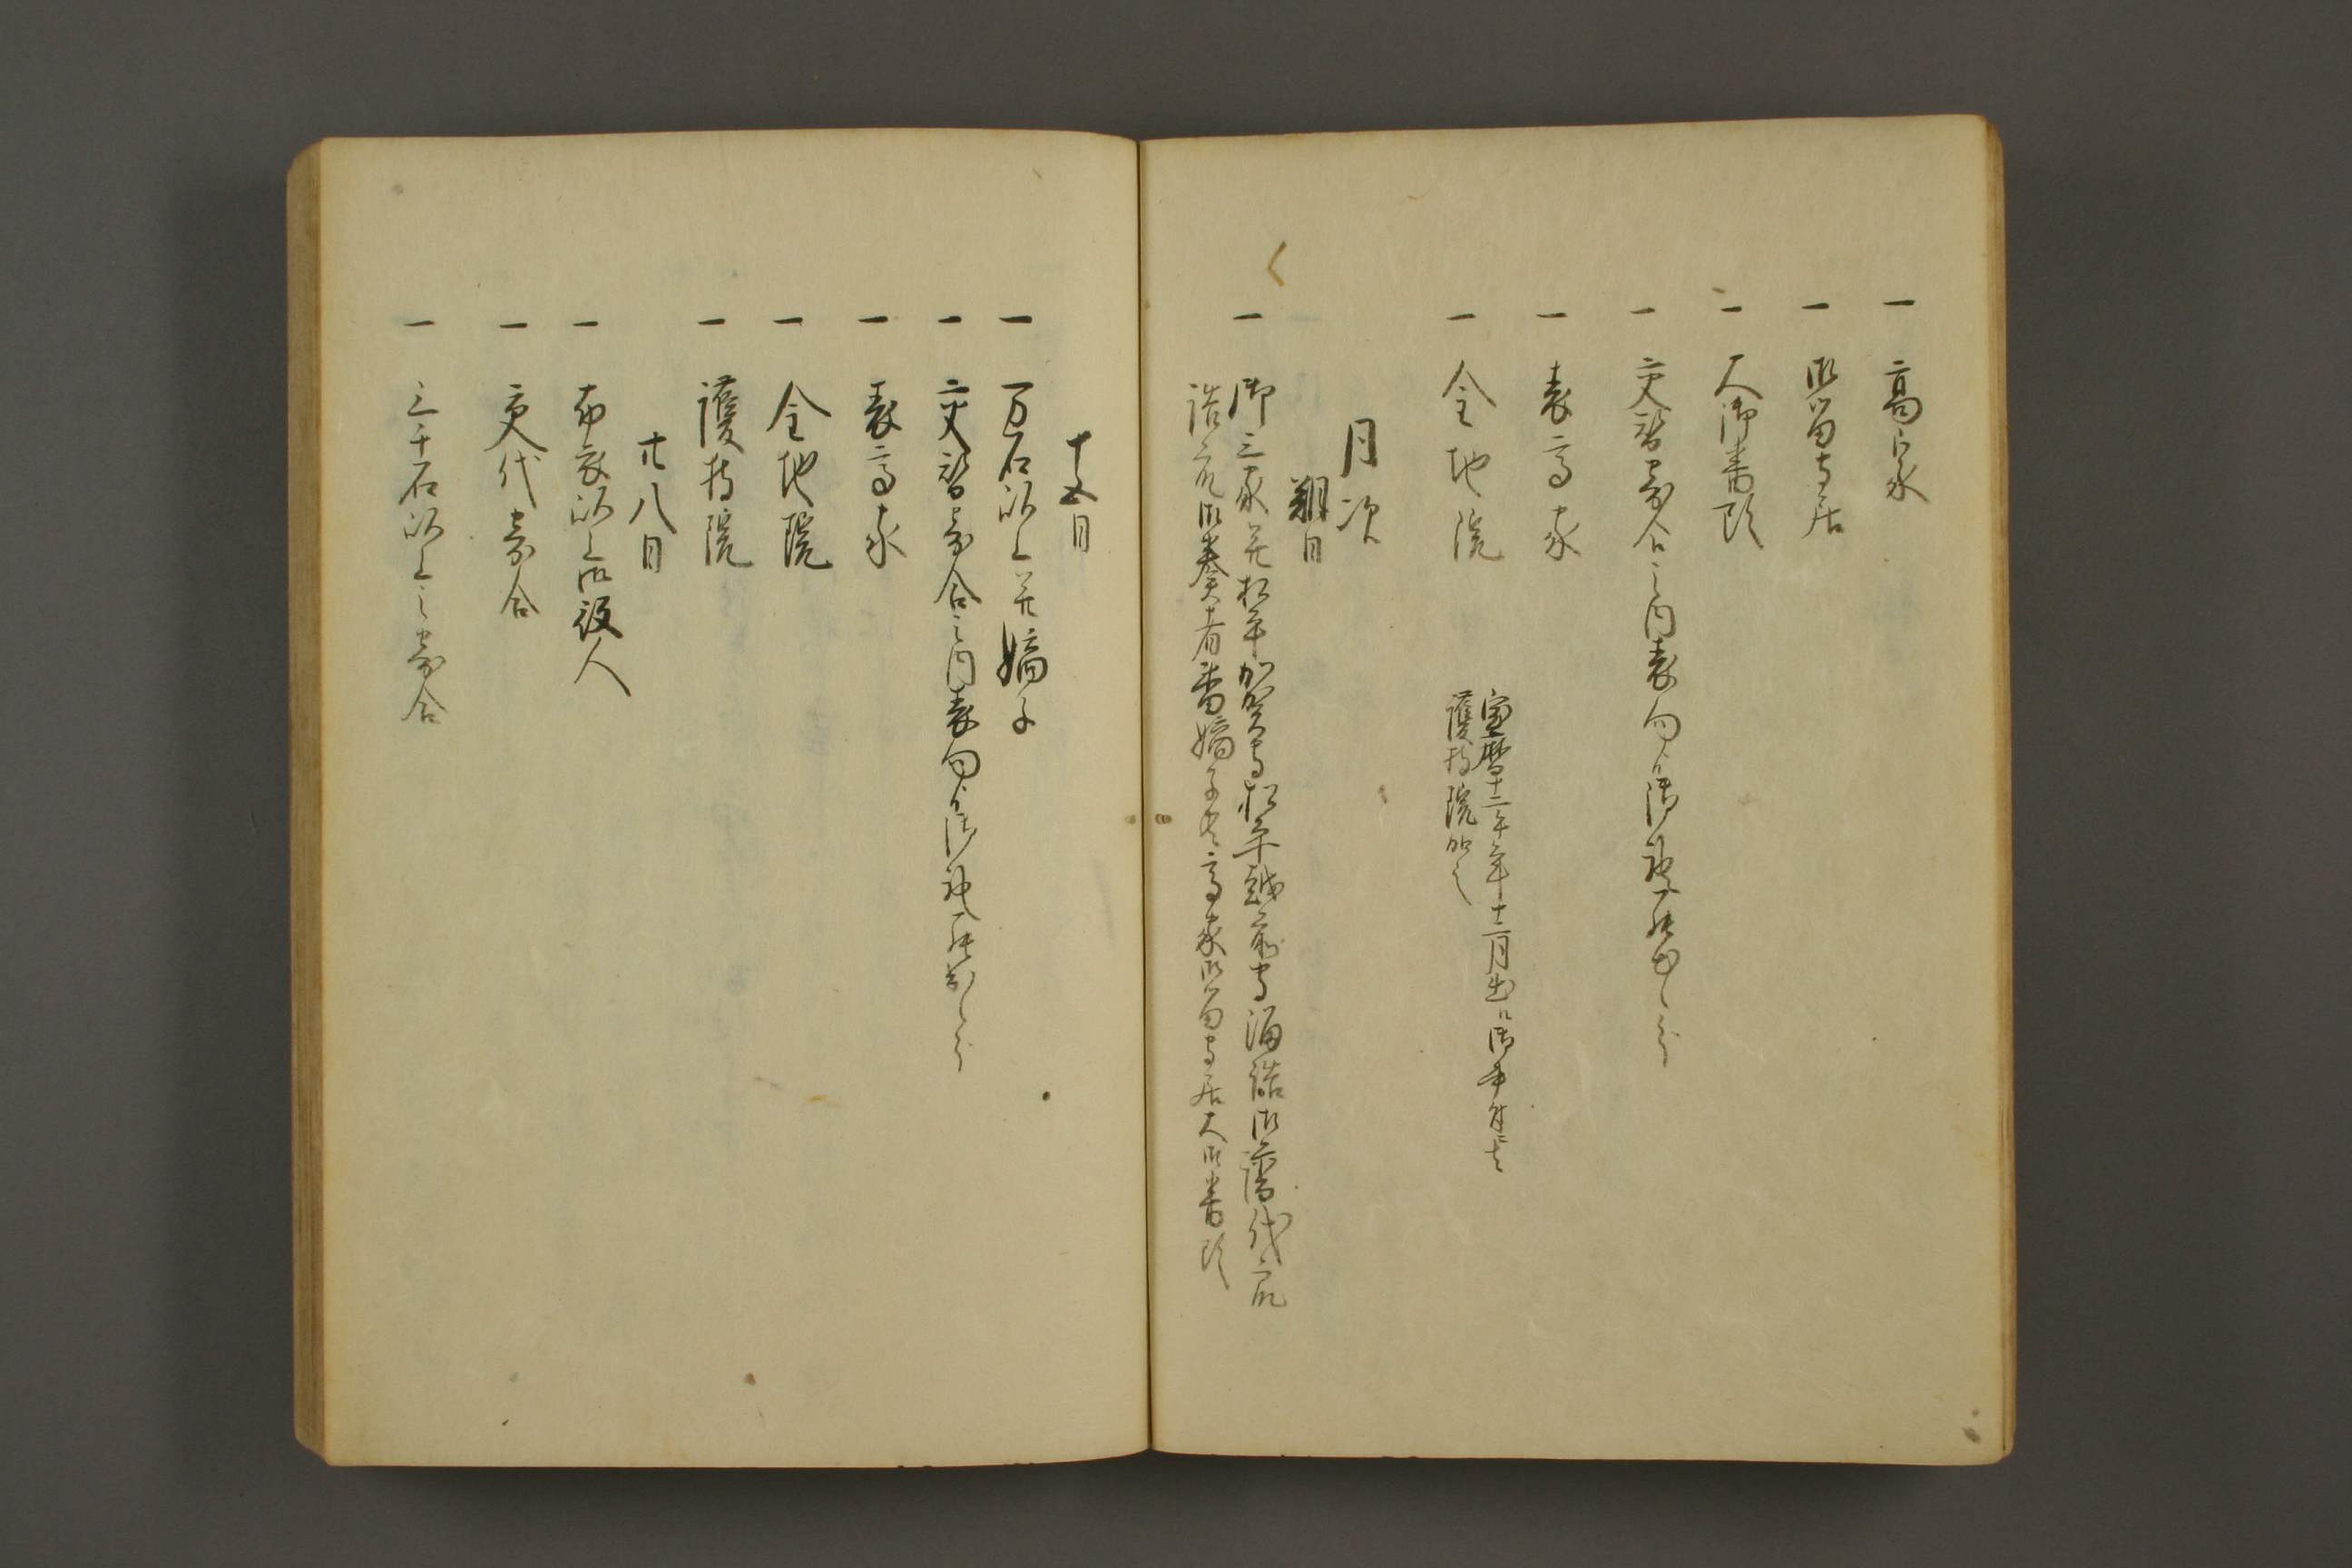 一 高家
一 御留守居
一 大御番頭
一 交替寄合之内表向御礼申上候分
一 表高家
一 金地院
宝暦十二午年十二月出御書付ニ
護持院加之
月次
朔日
一 御三家并松平加賀守松平越前守溜詰御譜代席
詰席御奏者番嫡子共高家御留守居大御番頭
十五日
一 万石以上并嫡子
一 交替寄合之内表向御礼
一 表高家
一 金地院
一 護持院
廿八日
一 布衣以上御役人
一 交代寄合
一 三千石以上之寄合